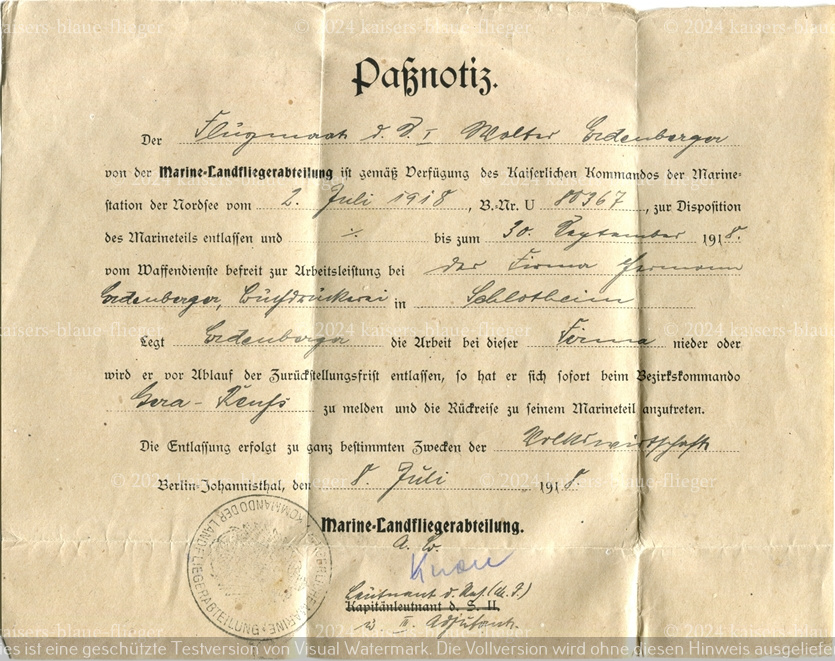 © 2024 kaisers-blaue-flieger © 2024 kaisers-blaue-flieger © 2024 kaisers-blaue-flieger
Paßnotiz.
Der Flugmaat d. R. I Walter Erdenberger
von der Marine-Landfliegerabteilung ist gemäß Verfügung des Kaiserlichen Kommandos der Marine-
station der Nordsee vom 2. Juli 1918, B.-Nr. U 80367, zur Disposition
des Marineteils entlassen und ./. bis zum 30. September 1918.
vom Waffendienste befreit zur Arbeitsleistung bei der Firma Hermann
Erdenberger, Buchdruckerei in Schlotheim
Legt Erdenberger die Arbeit bei dieser Firma nieder oder
wird er vor Ablauf der Zurückstellungsfrist entlassen, so hat er sich sofort beim Bezirkskommando
Gera-Reuß zu melden und die Rückreise zu seinem Marineteil anzutreten.
Die Entlassung erfolgt zu ganz bestimmten Zwecken der Volkswirtschaft
Berlin-Johannisthal, den 8. Juli 1918.
Marine-Landfliegerabteilung.
Leutnant d. Res. (M. I.)
Kapitänleutnant d. S. II.
u. II. Adjutant.
KOMMANDO DER LANDFLIEGERABTEILUNG KAISERLICHE MARINE
ies ist eine geschützte Testversion von Visual Watermark. Die Vollversion wird ohne diesen Hinweis ausgeliefe